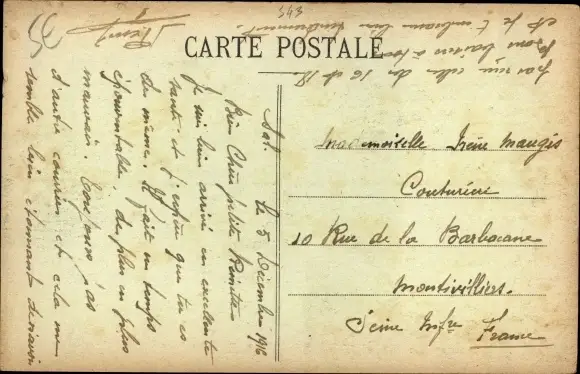 343
35
CARTE POSTALE
Le 5 Décembre 1916
Bien Chère petite
Je suis bien arrivé en excellente
santé et j'espère que tu es
de même. Il fait un temps
épouvantable. de plus en plus
mauvais. Toujours pas
d'autre courrier et cela me
semble bien étonnant
pas reçu celle du 16 et 18.
bons baisers à tous
et je t'embrasse bien tendrement.
Rémy
Mademoiselle Irène Maugis
Couturière
10 Rue de la Barbacane
Montivilliers.
Seine Infre
France